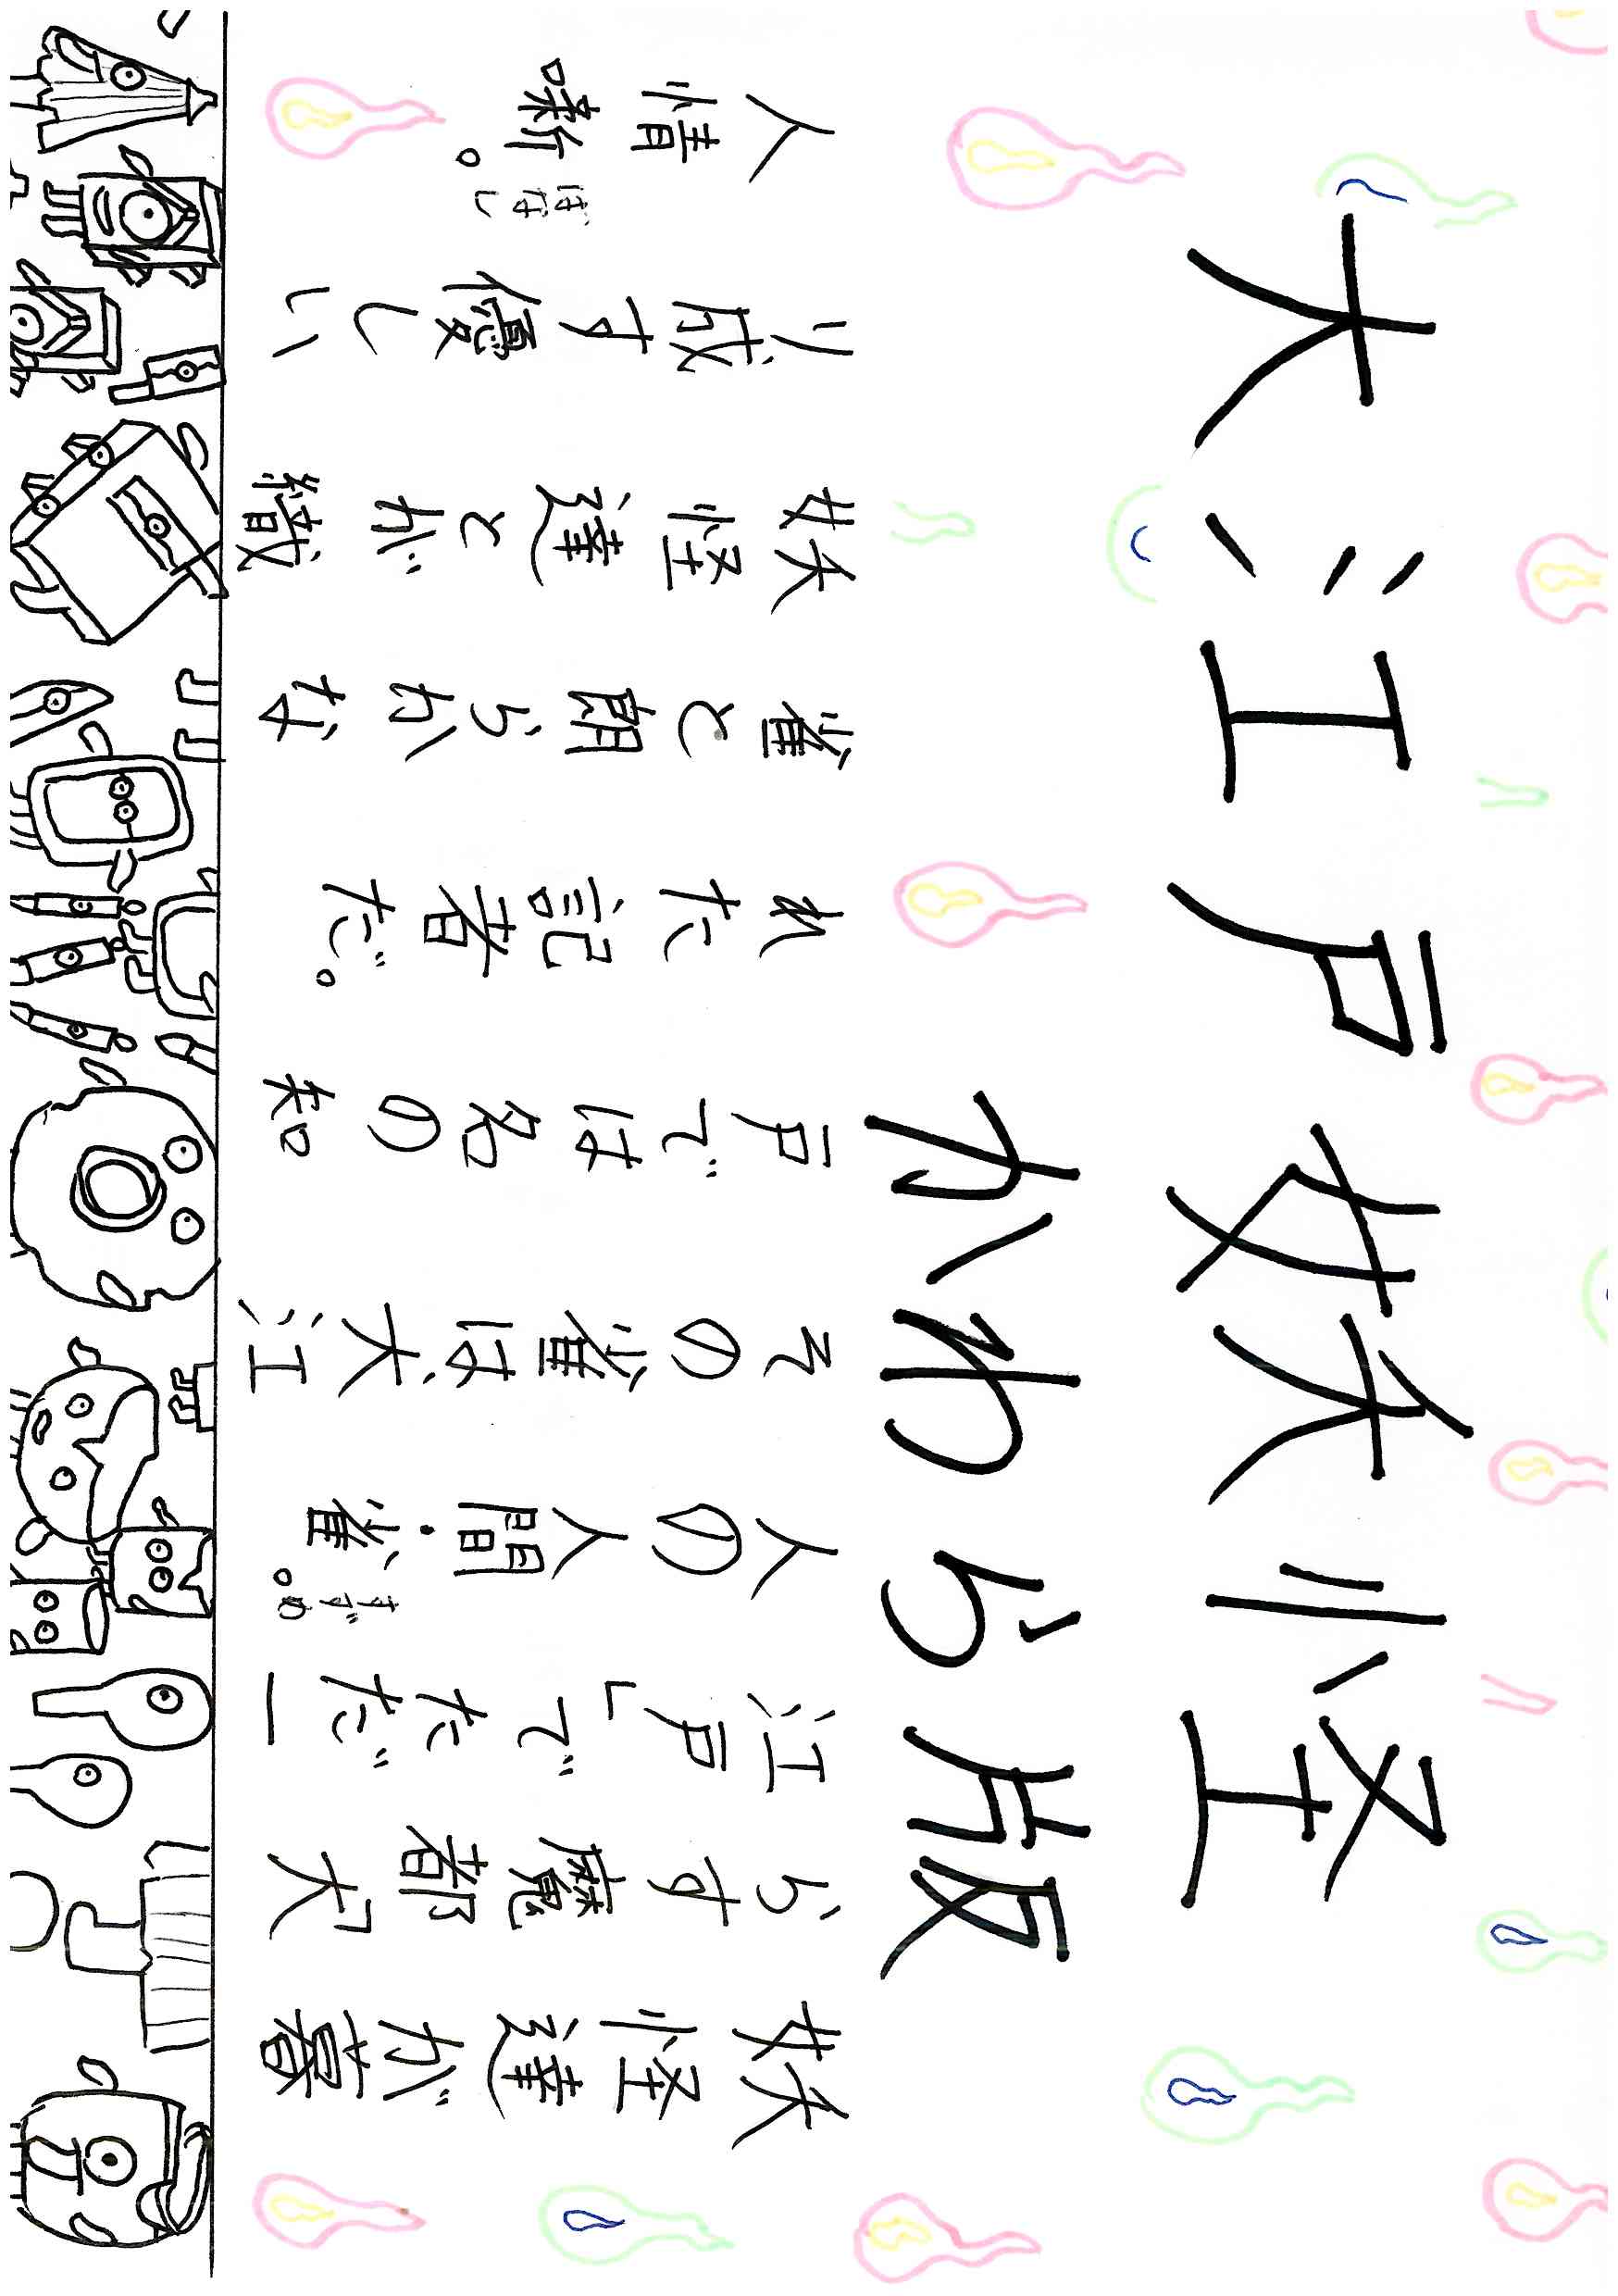 大江戸妖怪
かわら版
妖怪達が暮
らす魔都「大
江戸」でただ一
人の人間・雀。
すずめ
その雀は大江
戸では名の知
れた記者だ。
雀と朗らかな
妖怪達とが織
り成す優しい
人情噺。
ばなし